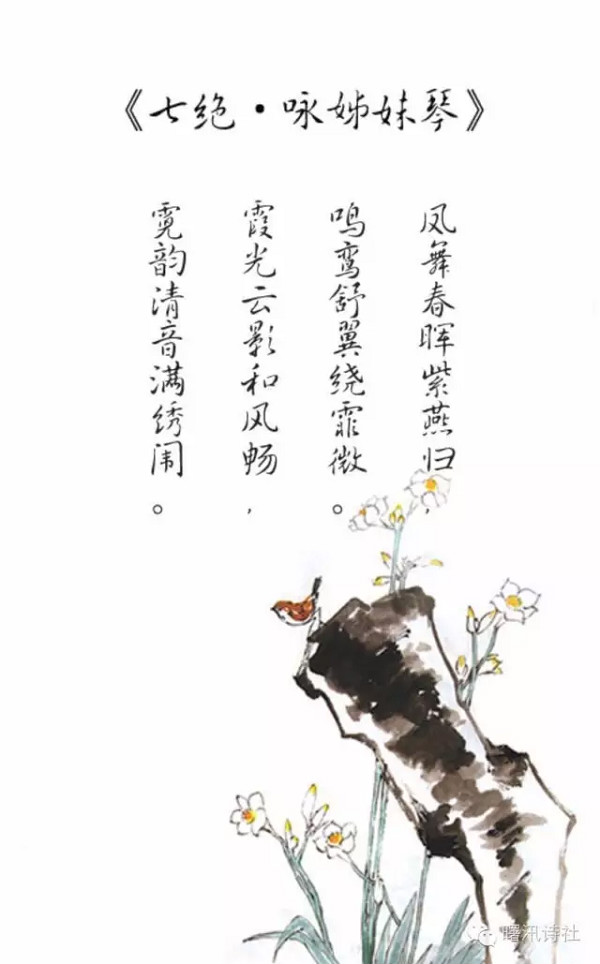 《七绝·咏姊妹琴》
凤舞春晖紫燕归，
鸣鸾舒翼绕霏微。
霞光云影和风畅，
霓韵清音满绣闱。
曙汛诗社